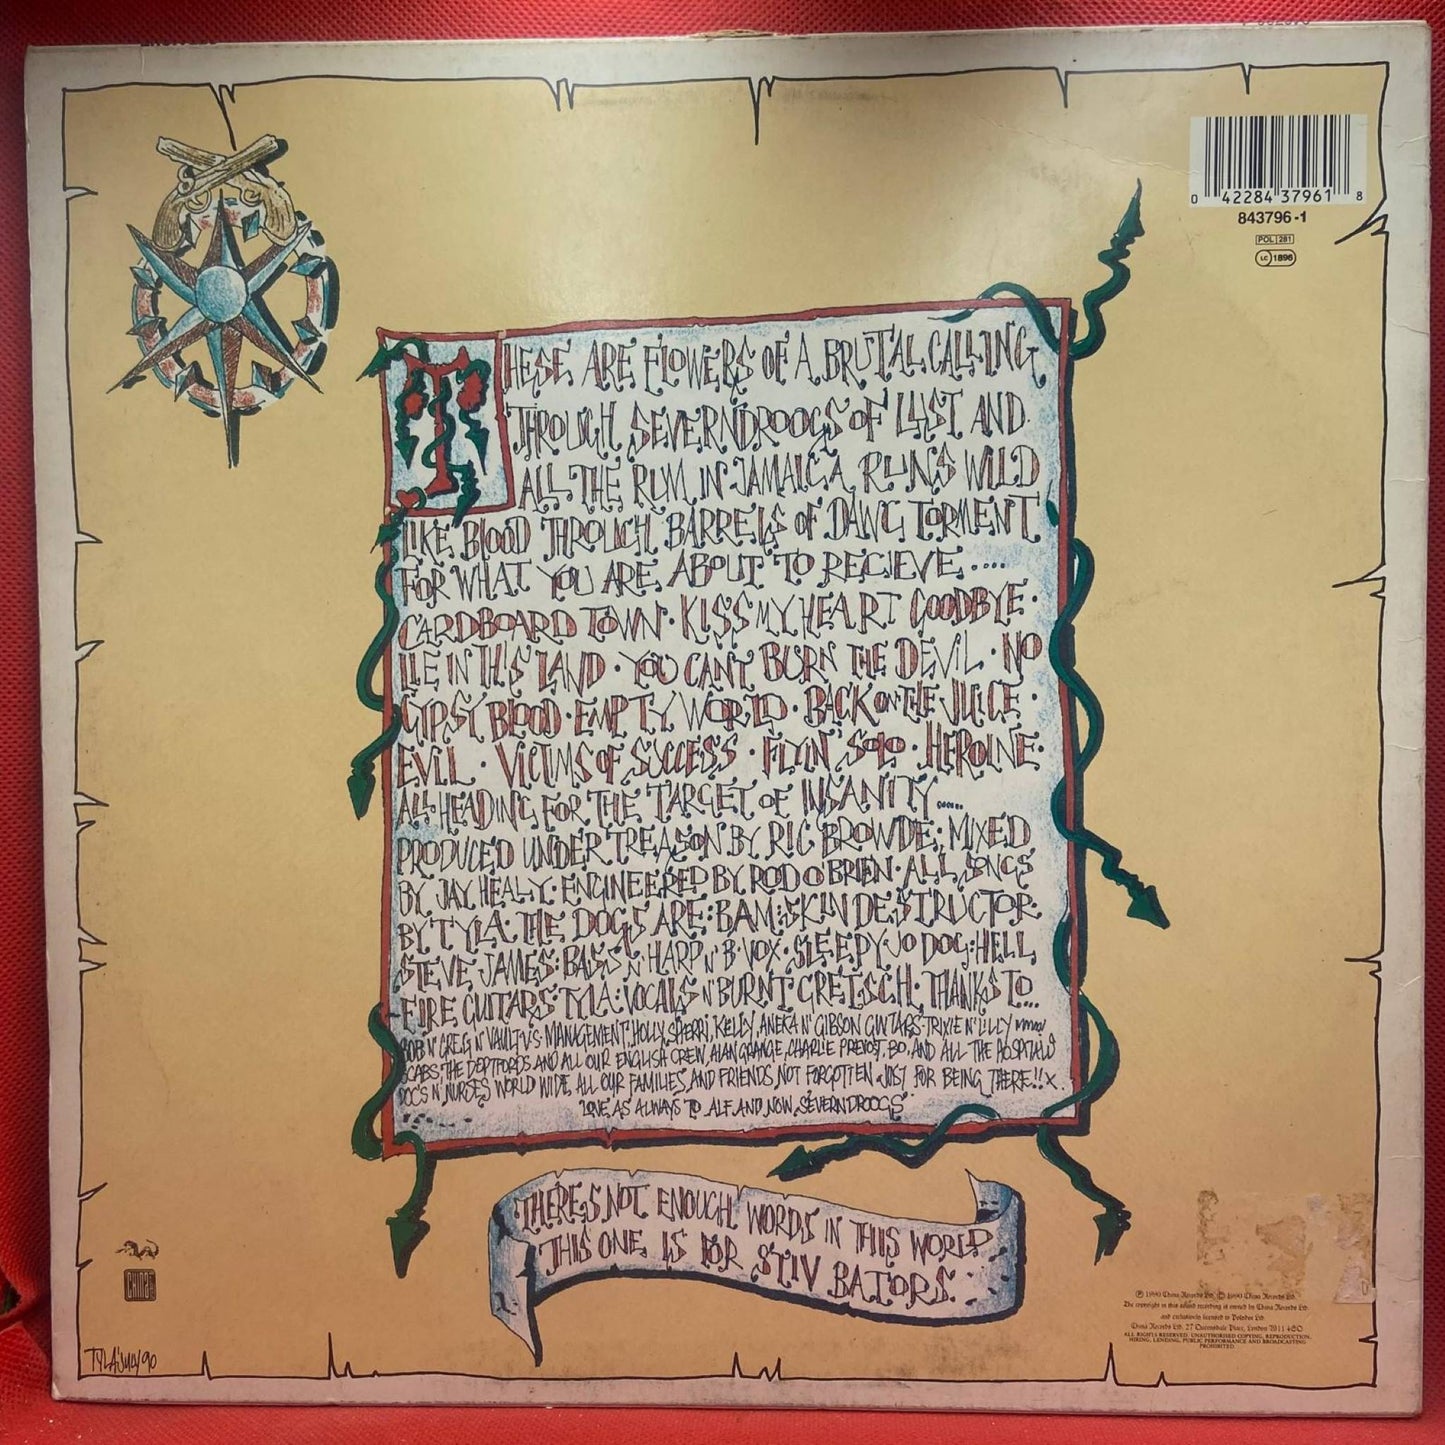 0 42284 37961 8
843796-1
POL 281
LC 1896
THESE ARE FLOWERS OF A BRUTAL CALLING
THROUGH SEVERNDROOGS OF LUST AND
ALL THE RUM IN JAMAICA RUNS WILD
LIKE BLOOD THROUGH BARRELS OF DAWG TORMENT
FOR WHAT YOU ARE ABOUT TO RECIEVE....
CARDBOARD TOWN · KISS MY HEART GOODBYE ·
LIE IN THIS LAND · YOU CANT BURN THE DEVIL · NO
GYPSY BLOOD · EMPTY WORLD · BACK ON THE JUICE ·
EVIL · VICTIMS OF SUCCESS · FLYIN' SOLO · HEROINE ·
ALL HEADING FOR THE TARGET OF INSANITY.....
PRODUCED UNDER TREASON BY RIC BROWDE; MIXED
BY JAY HEALY · ENGINEERED BY ROD O'BRIEN · ALL SONGS
BY TYLA · THE DOGS ARE: BAM: SKIN DESTRUCTOR ·
STEVE JAMES: BASS N' HARP N' B·VOX · SLEEPY JO DOG: HELL
FIRE GUITARS · TYLA: VOCALS N' BURNT GRETSCH · THANKS TO...
BOB N' GREG N' VAULT V·S· MANAGEMENT, HOLLY, SHERRI, KELLY, ANEKA N' GIBSON GUITARS · TRIXIE N' LILLY
SCABS THE DEPTFORDS AND ALL OUR ENGLISH CREW, ALAN GRANGE, CHARLIE PREVOST, BO, AND ALL THE HOSPITALS
DOCS N' NURSES WORLD WIDE, ALL OUR FAMILIES AND FRIENDS NOT FORGOTTEN JUST FOR BEING THERE!! X
LOVE AS ALWAYS TO ALF AND NOW SEVERNDROOGS
THERES NOT ENOUGH WORDS IN THIS WORLD
THIS ONE IS FOR STIV BATORS.
CHINA
TYLA JULY 90
℗ 1990 China Records Ltd. © 1990 China Records Ltd.
The copyright in this sound recording is owned by China Records Ltd.
and exclusively licensed to Polydor Ltd.
China Records Ltd. 27 Queensdale Place, London W11 4SQ
ALL RIGHTS RESERVED. UNAUTHORISED COPYING, REPRODUCTION,
HIRING, LENDING, PUBLIC PERFORMANCE AND BROADCASTING
PROHIBITED.